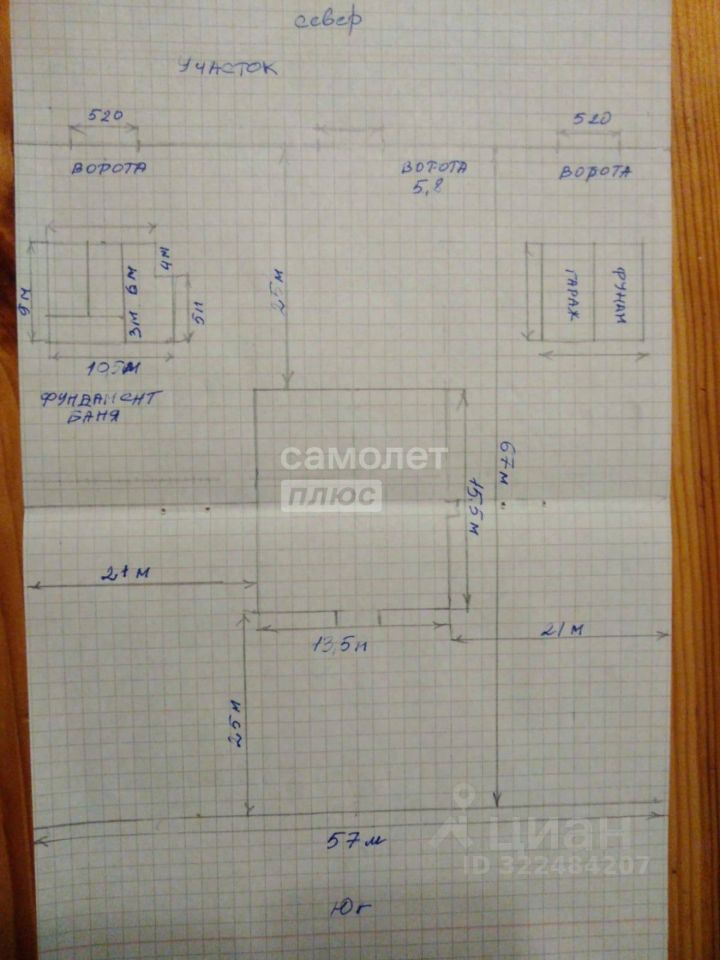 север
УЧАСТОК
520
520
ВОРОТА
ВОРОТА
5,8
ВОРОТА
9м
3м 6м
4м
5м
25м
ГАРАЖ
ФУНДАМ
10,5м
ФУНДАМЕНТ
БАНЯ
самолет
плюс
67м
15,5м
21м
13,5м
21м
25м
57м
циан
ID 322484207
Юг